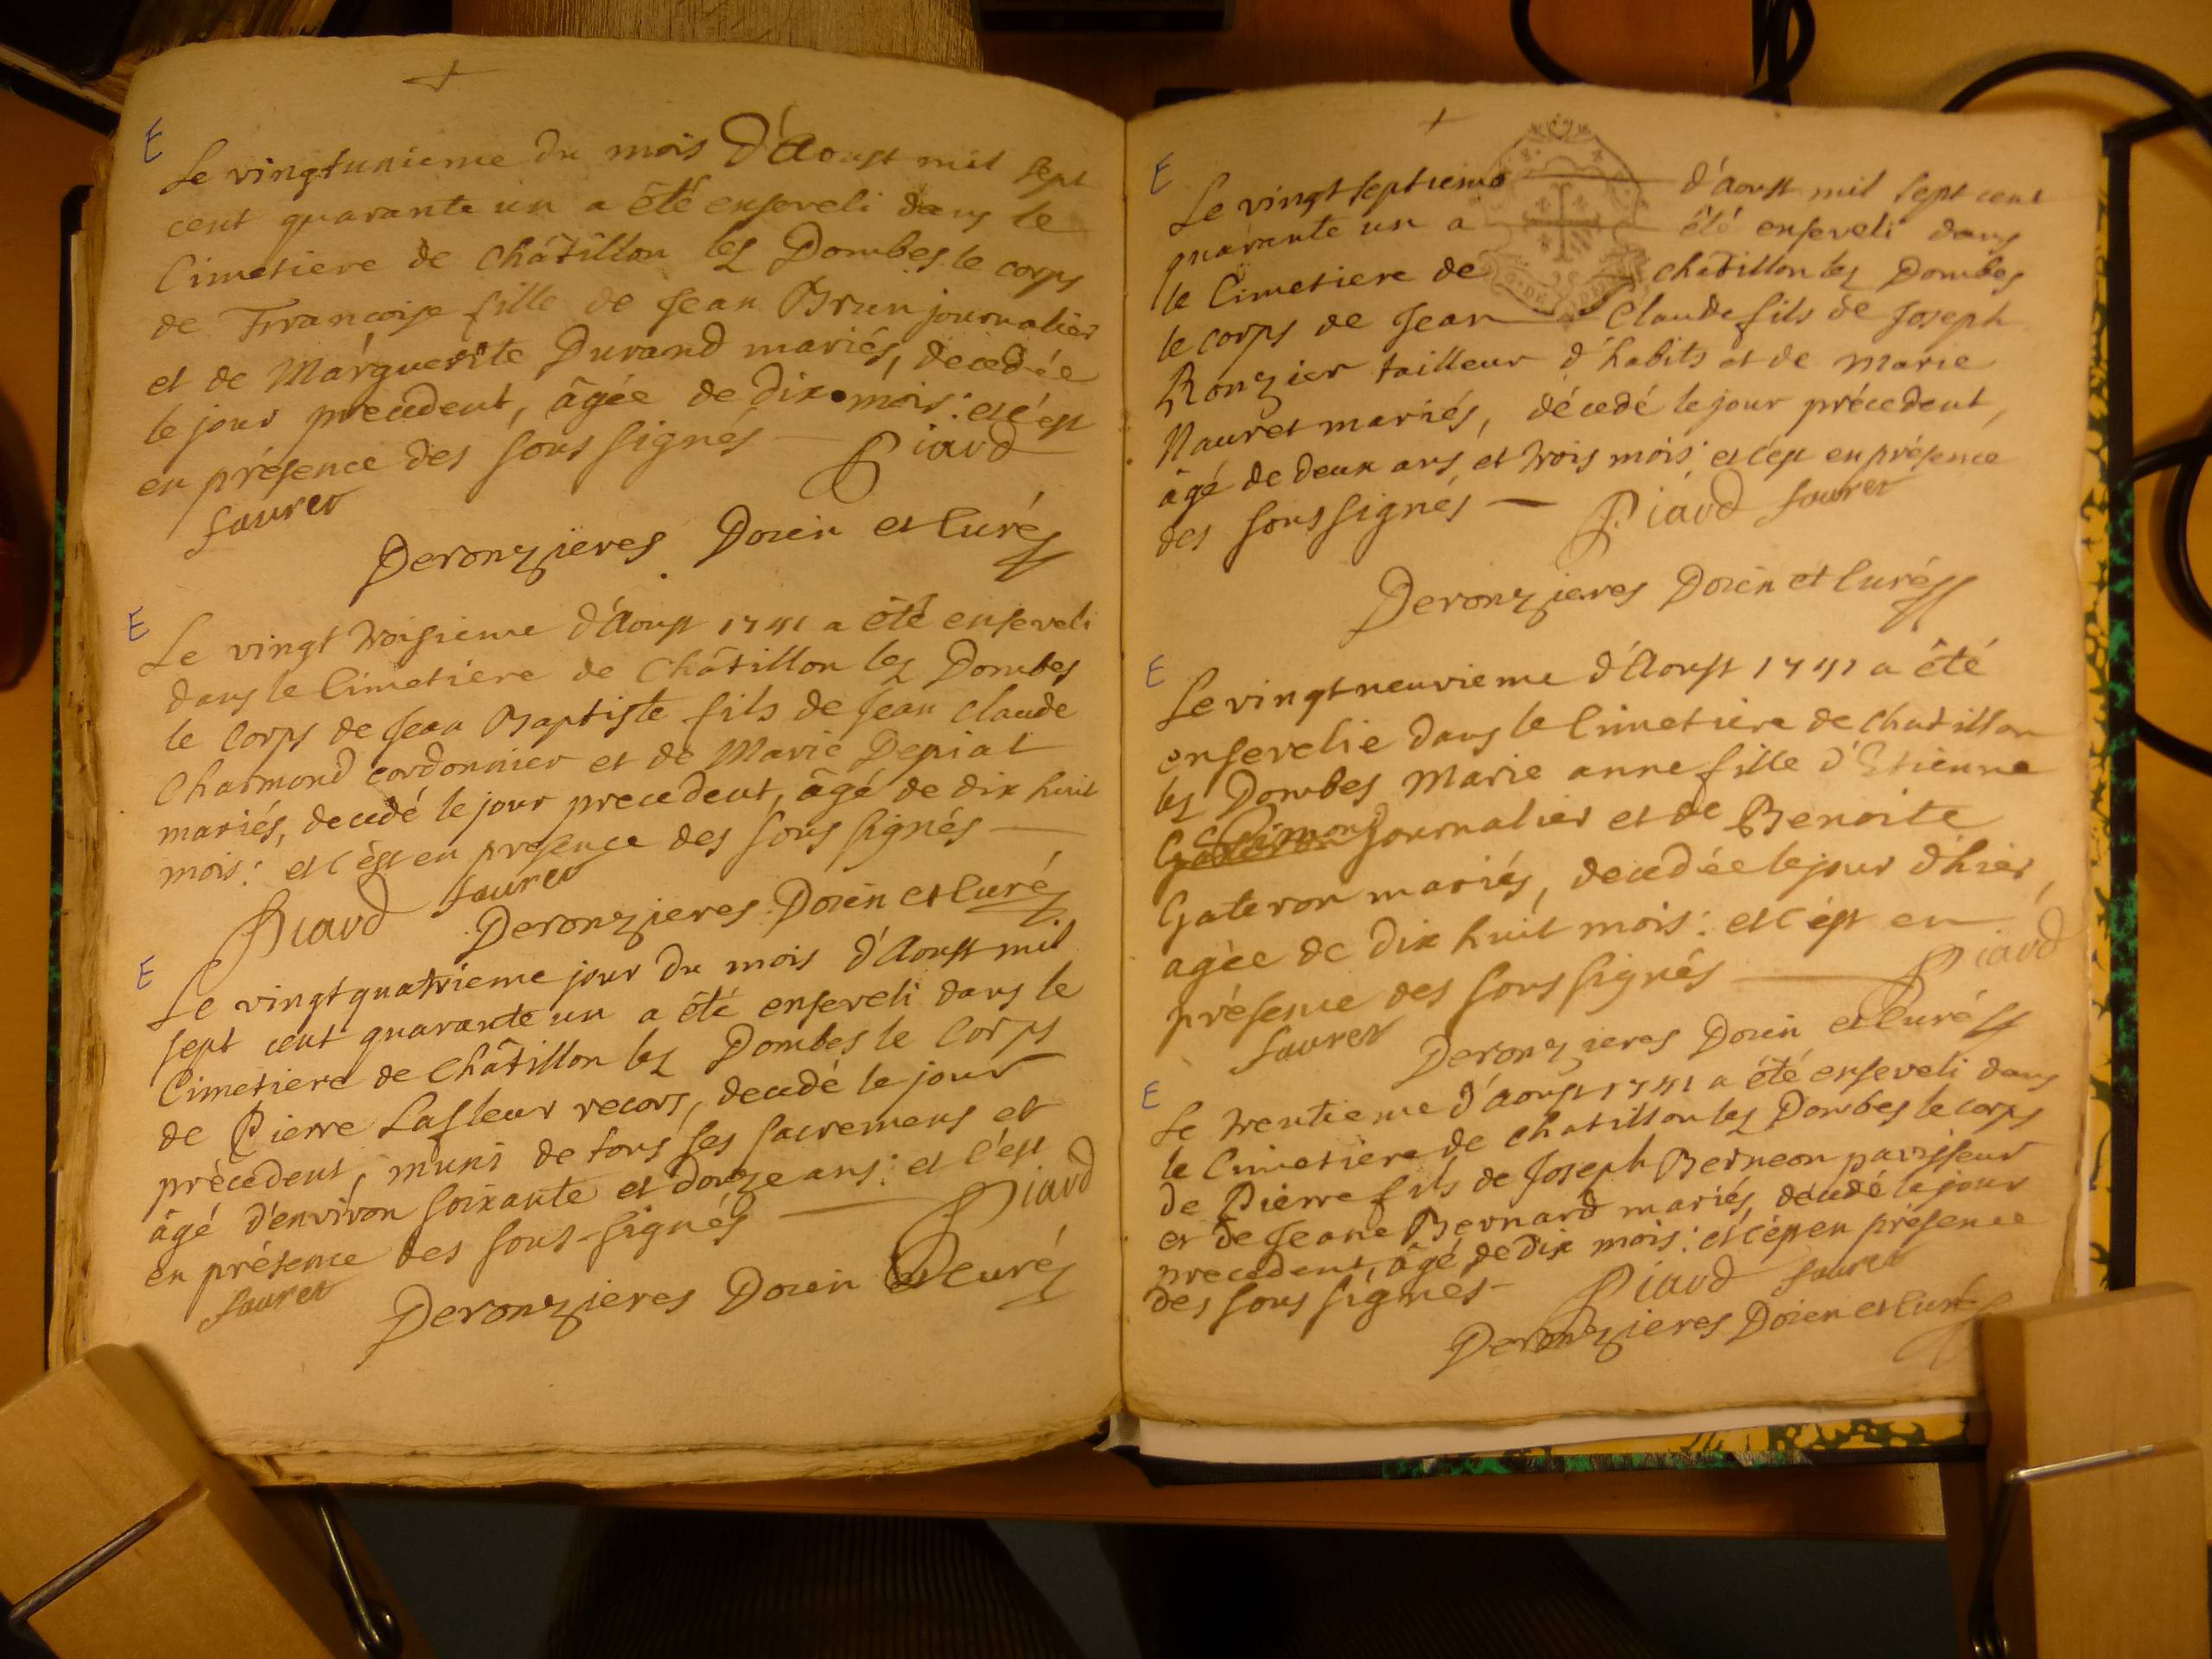 E
Le vingtunieme du mois d'Aoust mil sept
cent quarante un a été enseveli dans le
Cimetiere de Châtillon les Dombes le corps
de Francoise fille de Jean Brun journalier
et de Marguerite Durand mariés, decedée
le jour precedent, âgée de dix mois: et c'est
en présence des sous signés — Piard
Sauret
Deronzieres Doien et Curé
E
Le vingt troisieme d'Aoust 1741 a été enseveli
dans le Cimetiere de Châtillon les Dombes
le Corps de Jean Baptiste fils de Jean Claude
Charmond cordonnier et de Marie Depial
mariés, decedé le jour precedent, âgé de dix huit
mois: et c'est en presence des sous signés —
Piard Sauret
Deronzieres Doien et Curé
E
Le vingtquatrieme jour du mois d'Aoust mil
sept cent quarante un a été enseveli dans le
Cimetiere de Châtillon les Dombes le Corps
de Pierre Lafleur recors, decedé le jour
précedent, muni de tous ses sacremens et
âgé d'environ soixante et douze ans: et c'est
en présence des sous-signés — Piard
Sauret
Deronzieres Doien et Curé
E
Le vingt septieme — d'Aoust mil sept cent
quarante un a — été enseveli dans
le Cimetiere de châtillon les Dombes
le corps de Jean — Claude fils de Joseph
Ronzier tailleur d'habits et de Marie
Nauret mariés, décedé le jour précedent,
âgé de deux ans et trois mois: et c'est en présence
des sous signés — Piard Sauret
Deronzieres Doien et Curé
E
Le vingtneuvieme d'Aoust 1741 a été
ensevelie dans le Cimetiere de Chatillon
les Dombes Marie anne fille d'Etienne
journalier et de Benoite
Gateron mariés, decedée le jour d'hier,
agée de dix huit mois: et c'est en
présence des sous signés — Piard
Sauret
Deronzieres Doien et Curé
E
Le trentieme d'Aoust 1741 a été enseveli dans
le Cimetiere de Chatillon les Dombes le corps
de Pierre fils de Joseph Berneon
et de Jeane Bernard mariés, decedé le jour
precedent, âgé de dix mois: et c'est en présence
des sous signés — Piard Sauret
Deronzieres Doien et Curé